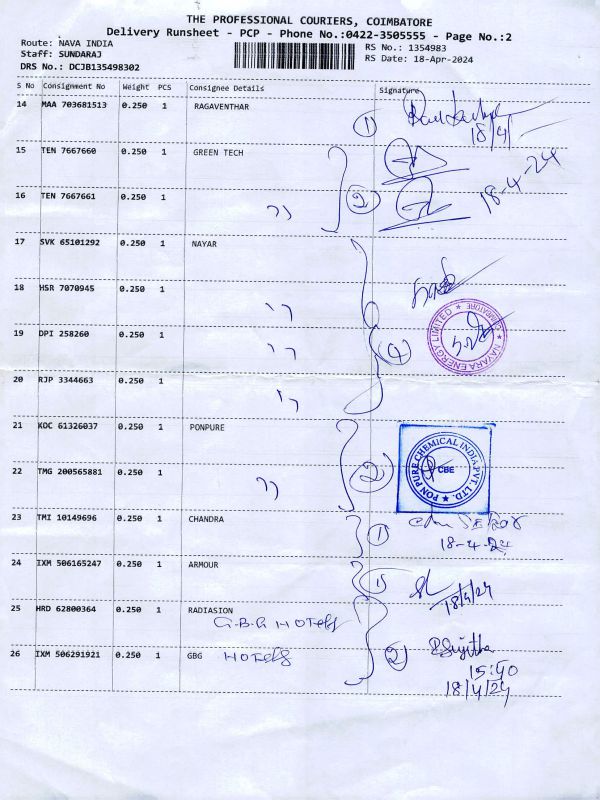 THE PROFESSIONAL COURIERS, COIMBATORE
Delivery Runsheet - PCP - Phone No.:0422-3505555 - Page No.:2
Route: NAVA INDIA
Staff: SUNDARAJ
DRS No.: DCJB135498302
RS No.: 1354983
RS Date: 18-Apr-2024
S No Consignment No Weight PCS Consignee Details Signature
14 MAA 703681513 0.250 1 RAGAVENTHAR
1 18/4/
15 TEN 7667660 0.250 1 GREEN TECH
2 18-4-24
16 TEN 7667661 0.250 1 ,,
17 SVK 65101292 0.250 1 NAYAR
18 HSR 7070945 0.250 1 ,,
19 DPI 258260 0.250 1 ,,
4 NAYARA ENERGY LIMITED ★ COIMBATORE ★
20 RJP 3344663 0.250 1 ,,
21 KOC 61326037 0.250 1 PONPURE
2 PON PURE CHEMICAL INDIA PVT. LTD. ★ CBE
22 TMG 200565881 0.250 1 ,,
23 TMI 10149696 0.250 1 CHANDRA
1 18-4-24
24 IXM 506165247 0.250 1 ARMOUR
1 18/4/24
25 HRD 62800364 0.250 1 RADIASION
G.B.G HOTELS
26 IXM 506291921 0.250 1 GBG HOTELS
2 P.Sujitha
15:40
18/4/24